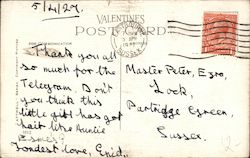 5/4/29.
VALENTINE'S
POST CARD
Thank you all
so much for the
Telegram. Don't
you think this
little girl has got
hair like Auntie
Fondest love, Enid.
Master Peter, Ezra,
Lock,
Partridge Green,
Sussex.